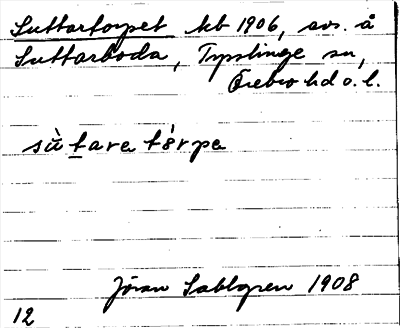 Suttartorpet kb 1906, avs. å
Suttarboda, Tysslinge sn,
Örebro hd o. l.
sùtare tórpe
Jöran Sahlgren 1908
12